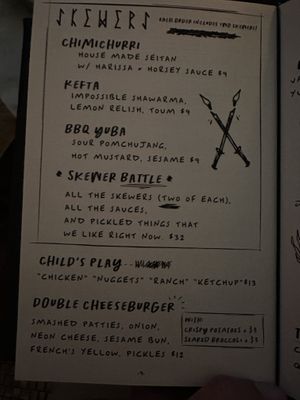 SKEWERS EACH ORDER INCLUDES TWO SKEWERS!
CHIMICHURRI
HOUSE MADE SEITAN
W/ HARISSA + HORSEY SAUCE $9
KEFTA
IMPOSSIBLE SHAWARMA,
LEMON RELISH, TOUM $9
BBQ YUBA
SOUR POMCHUJANG,
HOT MUSTARD, SESAME $9
• SKEWER BATTLE •
ALL THE SKEWERS (TWO OF EACH),
ALL THE SAUCES,
AND PICKLED THINGS THAT
WE LIKE RIGHT NOW. $32
CHILD'S PLAY
"CHICKEN" "NUGGETS" "RANCH" "KETCHUP" $13
DOUBLE CHEESEBURGER
SMASHED PATTIES, ONION,
NEON CHEESE, SESAME BUN,
FRENCH'S YELLOW, PICKLES $12
WITH:
CRISPY POTATOES + $3
SEARED BROCCOLI + $3